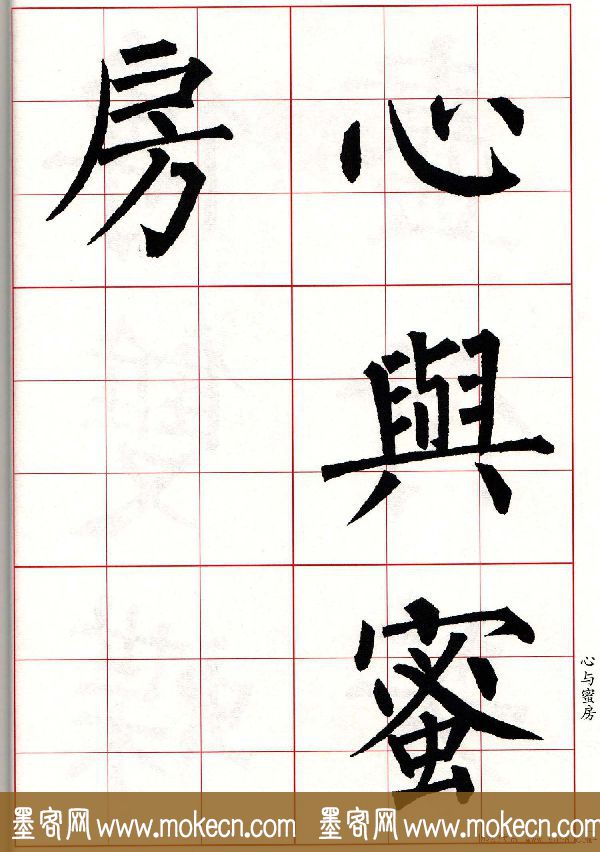 心與蜜
房
心与蜜房
墨客网 www.mokecn.com 墨客网 www.mokecn.com